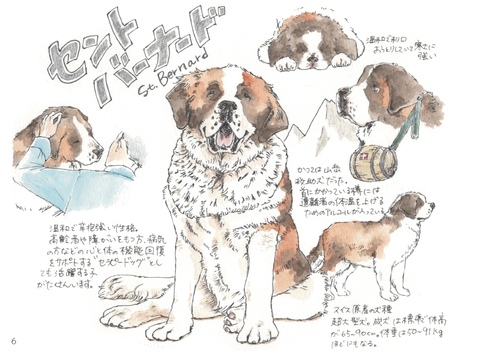 セント
バーナード
St. Bernard
温和で利口
おっとりしていて寒さに
強い
かつては山岳
救助犬だった。
首にかかっている樽には
遭難者の体温を上げる
ためのアルコールが入っている。
温和で辛抱強い性格。
高齢者や障がいをもつ方、病気
の方などの心と体の機能回復
をサポートする"セラピードッグ"とし
ても活躍する子
がたくさんいます。
スイス原産の犬種
超大型犬。成犬は標準で体高
が65〜90cm。体重は50〜91kg
ほどにもなる。
6